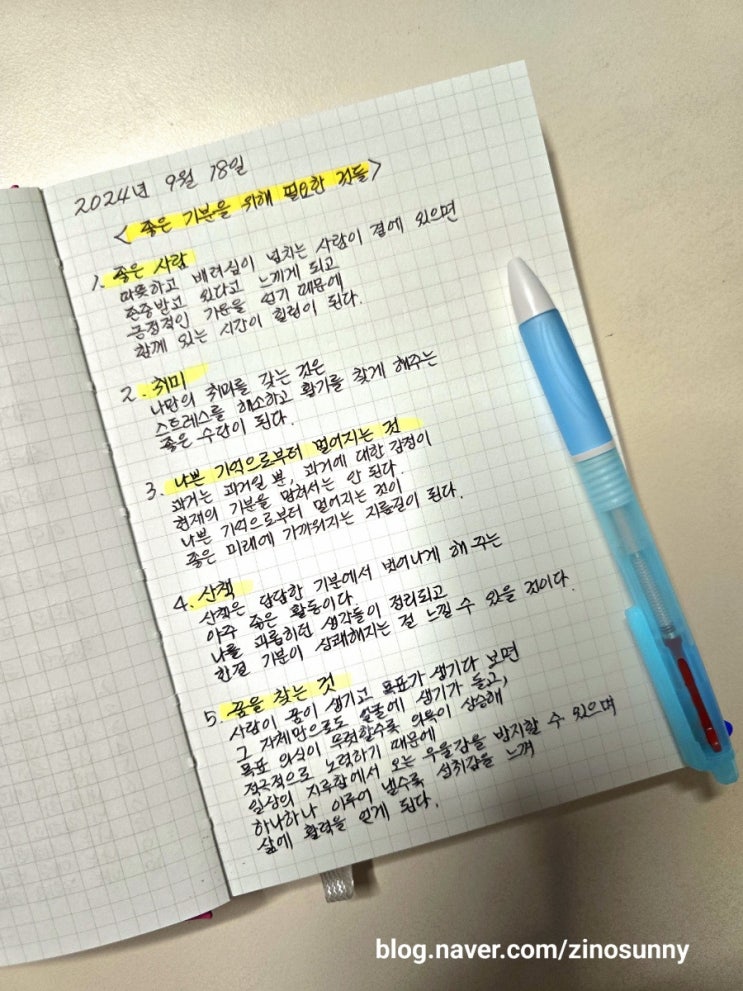 2024년 9월 18일
< 좋은 기분을 위해 필요한 것들>
1. 좋은 사람
따뜻하고 배려심이 넘치는 사람이 곁에 있으면
존중받고 있다고 느끼게 되고
긍정적인 기운을 얻기 때문에
함께 있는 시간이 힐링이 된다.
2. 취미
나만의 취미를 갖는 것은
스트레스를 해소하고 활기를 찾게 해주는
좋은 수단이 된다.
3. 나쁜 기억으로부터 멀어지는 것
과거는 과거일 뿐, 과거에 대한 감정이
현재의 기분을 망쳐서는 안 된다.
나쁜 기억으로부터 멀어지는 것이
좋은 미래에 가까워지는 지름길이 된다.
4. 산책
산책은 답답한 기분에서 벗어나게 해 주는
아주 좋은 활동이다.
나를 괴롭히던 생각들이 정리되고
한결 기분이 상쾌해지는 걸 느낄 수 있을 것이다.
5. 꿈을 찾는 것
사람이 꿈이 생기고 목표가 생기다 보면
그 자체만으로도 얼굴에 생기가 돌고,
목표 의식이 뚜렷할수록 의욕이 상승해
적극적으로 노력하기 때문에
일상의 지루함에서 오는 우울감을 방지할 수 있으며
하나하나 이루어 낼수록 성취감을 느껴
삶에 활력을 얻게 된다.
blog.naver.com/zinosunny